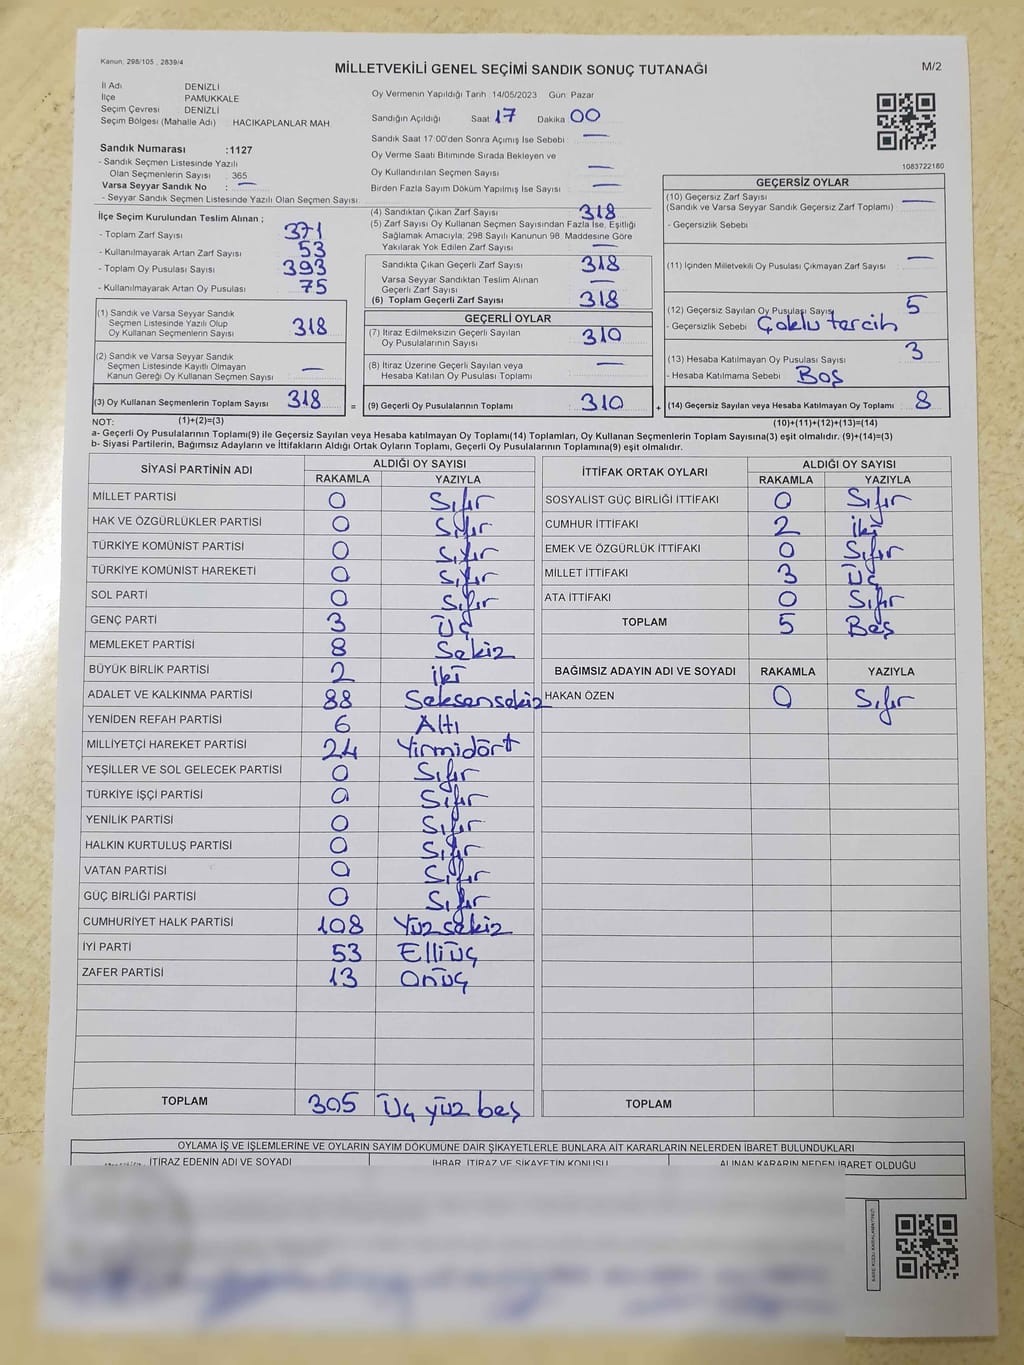 Kanun; 298/105 , 2839/4
MİLLETVEKİLİ GENEL SEÇİMİ SANDIK SONUÇ TUTANAĞI
M/2
İl Adı DENİZLİ
İlçe PAMUKKALE
Seçim Çevresi DENİZLİ
Seçim Bölgesi (Mahalle Adı) HACIKAPLANLAR MAH.
Sandık Numarası :1127
- Sandık Seçmen Listesinde Yazılı
Olan Seçmenlerin Sayısı : 365
Varsa Seyyar Sandık No : —
- Seyyar Sandık Seçmen Listesinde Yazılı Olan Seçmen Sayısı
Oy Vermenin Yapıldığı Tarih :14/05/2023 Gün: Pazar
Sandığın Açıldığı Saat 17 Dakika 00
Sandık Saat 17:00'den Sonra Açımış İse Sebebi —
Oy Verme Saati Bitiminde Sırada Bekleyen ve
Oy Kullandırılan Seçmen Sayısı —
Birden Fazla Sayım Döküm Yapılmış İse Sayısı —
1083722180
İlçe Seçim Kurulundan Teslim Alınan ;
- Toplam Zarf Sayısı 371
- Kullanılmayarak Artan Zarf Sayısı 53
- Toplam Oy Pusulası Sayısı 393
- Kullanılmayarak Artan Oy Pusulası 75
(1) Sandık ve Varsa Seyyar Sandık
Seçmen Listesinde Yazılı Olup
Oy Kullanan Seçmenlerin Sayısı 318
(2) Sandık ve Varsa Seyyar Sandık
Seçmen Listesinde Kayıtlı Olmayan
Kanun Gereği Oy Kullanan Seçmen Sayısı —
(3) Oy Kullanan Seçmenlerin Toplam Sayısı 318 =
(4) Sandıktan Çıkan Zarf Sayısı 318
(5) Zarf Sayısı Oy Kullanan Seçmen Sayısından Fazla İse, Eşitliği
Sağlamak Amacıyla; 298 Sayılı Kanunun 98. Maddesine Göre
Yakılarak Yok Edilen Zarf Sayısı —
Sandıkta Çıkan Geçerli Zarf Sayısı 318
Varsa Seyyar Sandıktan Teslim Alınan
Geçerli Zarf Sayısı —
(6) Toplam Geçerli Zarf Sayısı 318
GEÇERLİ OYLAR
(7) İtiraz Edilmeksizin Geçerli Sayılan
Oy Pusulalarının Sayısı 310
(8) İtiraz Üzerine Geçerli Sayılan veya
Hesaba Katılan Oy Pusulası Toplamı —
(9) Geçerli Oy Pusulalarının Toplamı 310 +
GEÇERSİZ OYLAR
(10) Geçersiz Zarf Sayısı
(Sandık ve Varsa Seyyar Sandık Geçersiz Zarf Toplamı) —
- Geçersizlik Sebebi
(11) İçinden Milletvekili Oy Pusulası Çıkmayan Zarf Sayısı —
(12) Geçersiz Sayılan Oy Pusulası Sayısı 5
- Geçersizlik Sebebi Çoklu tercih
(13) Hesaba Katılmayan Oy Pusulası Sayısı 3
- Hesaba Katılmama Sebebi Boş
(14) Geçersiz Sayılan veya Hesaba Katılmayan Oy Toplamı 8
NOT: (1)+(2)=(3) (10)+(11)+(12)+(13)=(14)
a- Geçerli Oy Pusulalarının Toplamı(9) ile Geçersiz Sayılan veya Hesaba katılmayan Oy Toplamı(14) Toplamları, Oy Kullanan Seçmenlerin Toplam Sayısına(3) eşit olmalıdır. (9)+(14)=(3)
b- Siyasi Partilerin, Bağımsız Adayların ve İttifakların Aldığı Ortak Oyların Toplamı, Geçerli Oy Pusulalarının Toplamına(9) eşit olmalıdır.
SİYASİ PARTİNİN ADI ALDIĞI OY SAYISI
RAKAMLA YAZIYLA
MİLLET PARTİSİ 0 Sıfır
HAK VE ÖZGÜRLÜKLER PARTİSİ 0 Sıfır
TÜRKİYE KOMÜNİST PARTİSİ 0 Sıfır
TÜRKİYE KOMÜNİST HAREKETİ 0 Sıfır
SOL PARTİ 0 Sıfır
GENÇ PARTİ 3 Üç
MEMLEKET PARTİSİ 8 Sekiz
BÜYÜK BİRLİK PARTİSİ 2 İki
ADALET VE KALKINMA PARTİSİ 88 Seksensekiz
YENİDEN REFAH PARTİSİ 6 Altı
MİLLİYETÇİ HAREKET PARTİSİ 24 Yirmidört
YEŞİLLER VE SOL GELECEK PARTİSİ 0 Sıfır
TÜRKİYE İŞÇİ PARTİSİ 0 Sıfır
YENİLİK PARTİSİ 0 Sıfır
HALKIN KURTULUŞ PARTİSİ 0 Sıfır
VATAN PARTİSİ 0 Sıfır
GÜÇ BİRLİĞİ PARTİSİ 0 Sıfır
CUMHURİYET HALK PARTİSİ 108 Yüzsekiz
İYİ PARTİ 53 Elliüç
ZAFER PARTİSİ 13 Onüç
TOPLAM 305 Üç yüz beş
İTTİFAK ORTAK OYLARI ALDIĞI OY SAYISI
RAKAMLA YAZIYLA
SOSYALİST GÜÇ BİRLİĞİ İTTİFAKI 0 Sıfır
CUMHUR İTTİFAKI 2 İki
EMEK VE ÖZGÜRLÜK İTTİFAKI 0 Sıfır
MİLLET İTTİFAKI 3 Üç
ATA İTTİFAKI 0 Sıfır
TOPLAM 5 Beş
BAĞIMSIZ ADAYIN ADI VE SOYADI RAKAMLA YAZIYLA
HAKAN ÖZEN 0 Sıfır
TOPLAM
OYLAMA İŞ VE İŞLEMLERİNE VE OYLARIN SAYIM DÖKÜMÜNE DAİR ŞİKAYETLERLE BUNLARA AİT KARARLARIN NELERDEN İBARET BULUNDUKLARI
İTİRAZ EDENİN ADI VE SOYADI İHBAR, İTİRAZ VE ŞİKAYETİN KONUSU ALINAN KARARIN NEDEN İBARET OLDUĞU